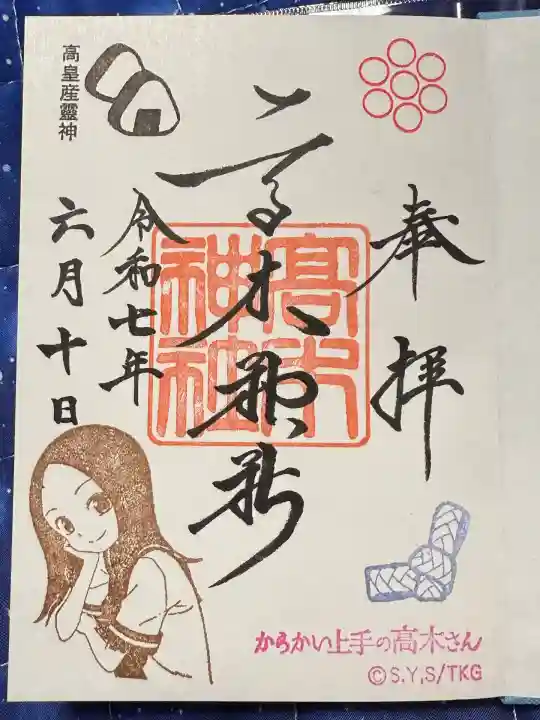 奉拝
高木神社
高木神社
令和七年
六月十日
高皇産靈神
からかい上手の高木さん
©S.Y,S/TKG